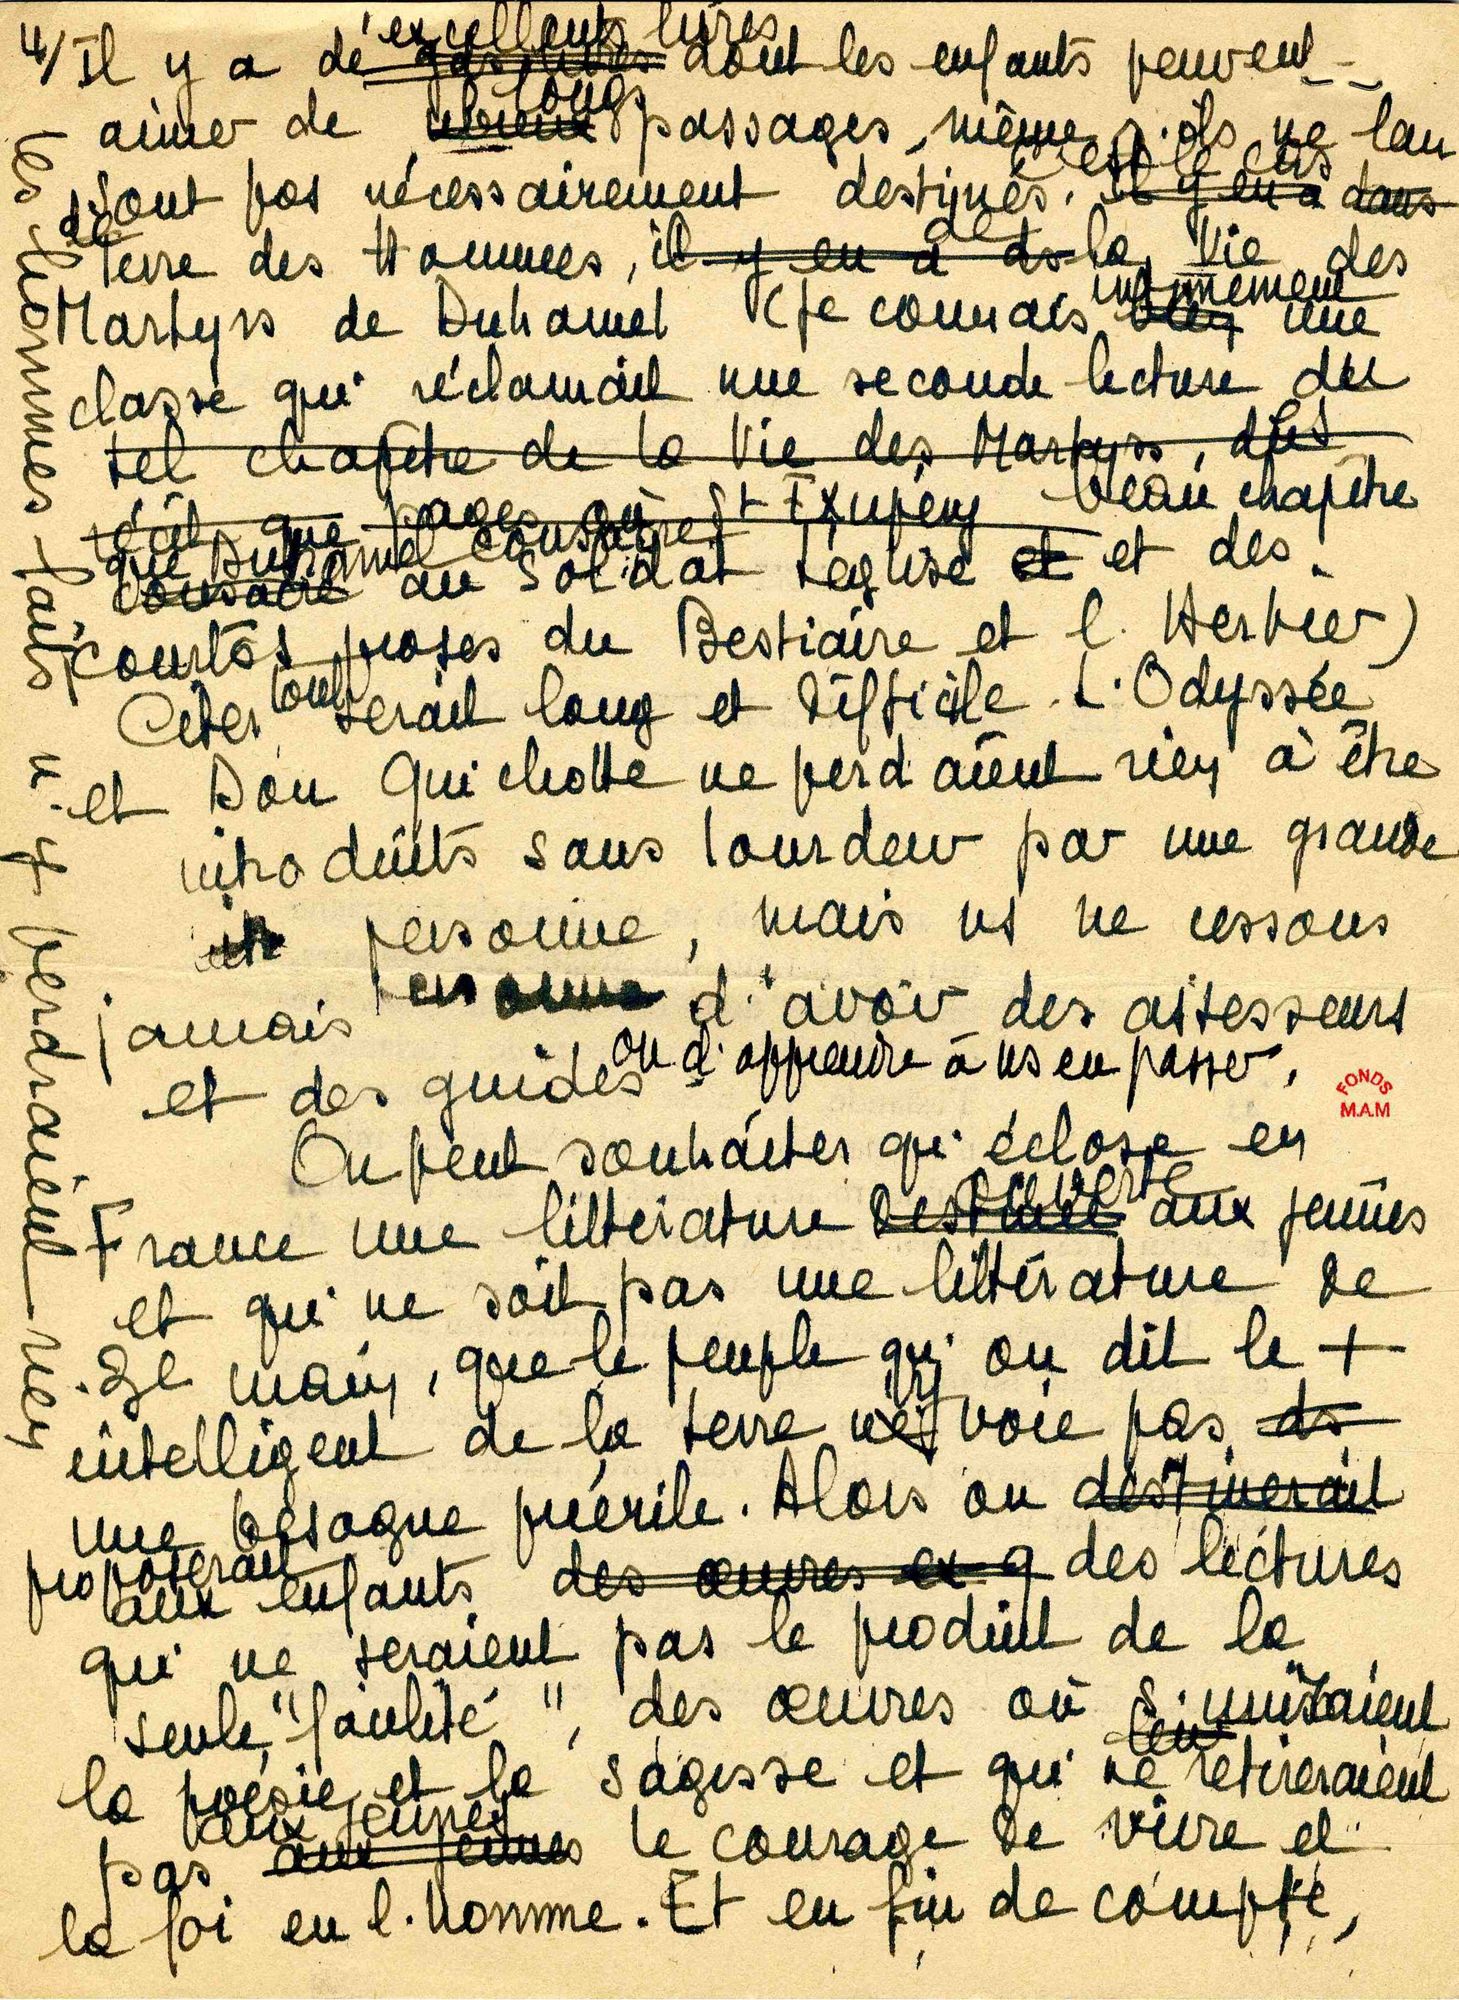 4/ Il y a d'excellents livres dont les enfants peuvent
aimer de longs passages, même s'ils ne leur
sont pas nécessairement destinés. C'est le cas il y en a dans
de Terre des Hommes, il y en a ds de la Vie des
Martyrs de Duhamel (je connais intimement bien une
classe qui réclamait une seconde lecture du
tel chapitre de la Vie des Martyrs, des
récits que pages où St Exupéry beau chapitre
que Duhamel consacre
consacre au soldat et et des
courtes proses du Bestiaire et l'Herbier)
Citer tout serait long et difficile. L'Odyssée
et Don Quichotte ne perdraient rien à être
introduits sans lourdeur par une grande
personne, mais ns ne cessons
jamais personne d'avoir des assesseurs
et des guides ou d'apprendre à ns en passer.
FONDS
M.A.M
On peut souhaiter qu'éclose en
France une littérature destinée ouverte aux jeunes
et qui ne soit pas une littérature de
2e main, que le peuple qu'on dit le +
intelligent de la terre n'y voie pas ds
une besogne puérile. Alors on destinerait
proposerait
aux enfants des œuvres ex q des lectures
qui ne seraient pas le produit de la
seule "facilité", des œuvres où s'uniraient
la poésie et la sagesse et qui leur ne retireraient
pas aux jeunes aux jeunes le courage de vivre et
la foi en l'homme. Et en fin de compte,
les hommes faits n'y perdraient rien